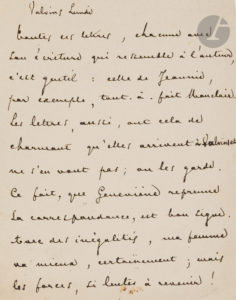 Valvins Lundi
Toutes ces lettres, chacune avec
son écriture qui ressemble à l'auteur,
c'est gentil : celle de Jeannie,
par exemple, tout-à-fait Mauclair.
Les lettres, aussi, ont cela de
charmant qu'elles arrivent à Valvins et
ne s'en vont pas ; on les garde.
Ce fait, que Geneviève reprenne
la correspondance, est bon signe.
des inégalités, ma femme
va mieux, certainement ; mais
les forces, si lentes à revenir !